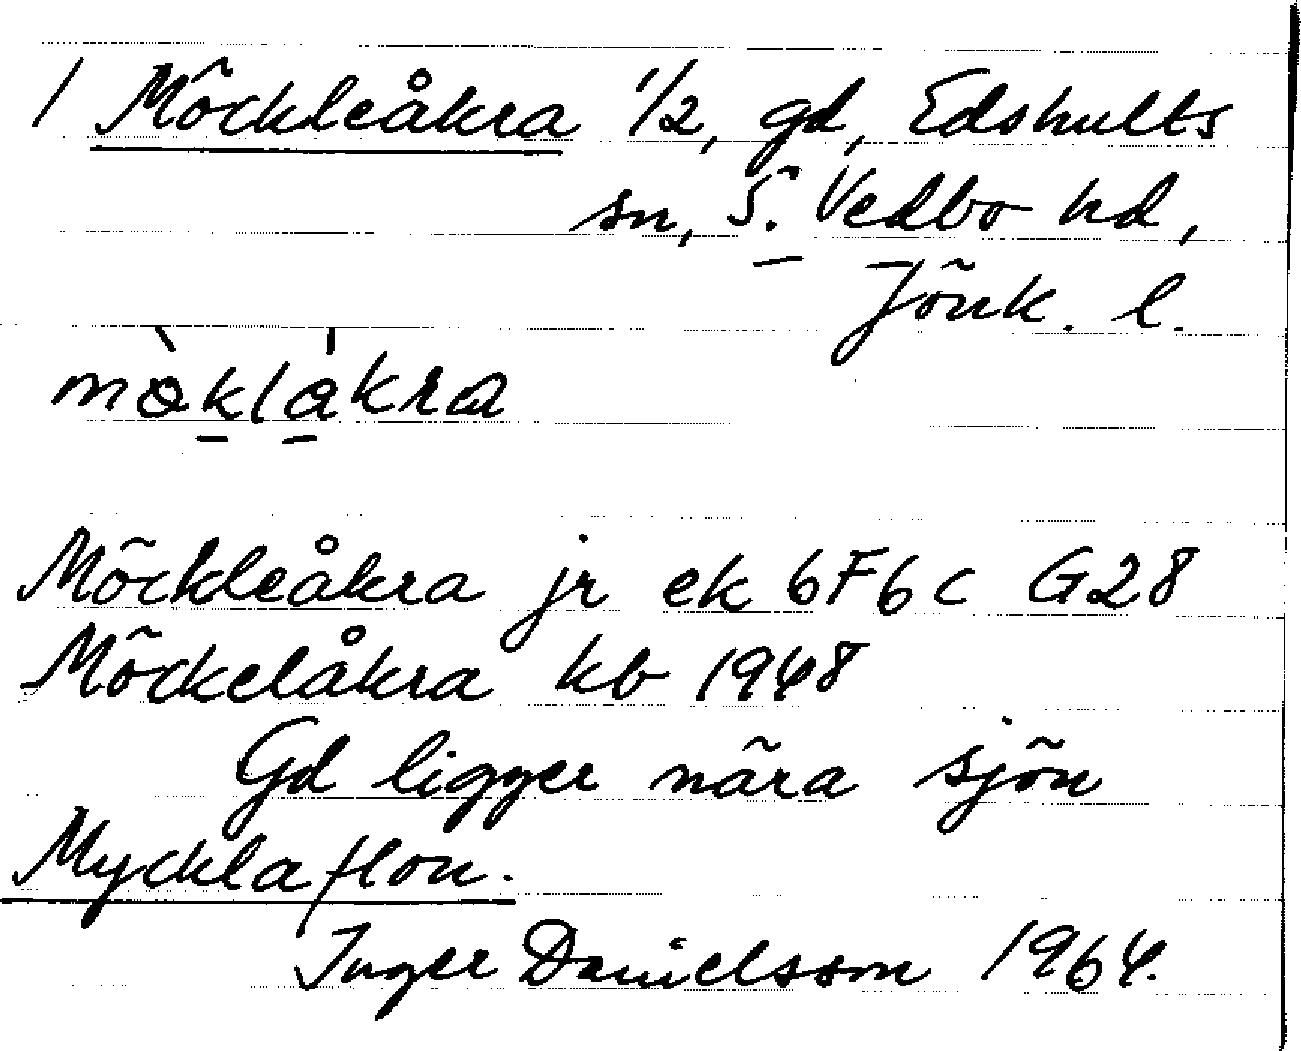 1 Möckleåkra 1/2, gd, Edshults
sn, S. Vedbo hd,
Jönk. l.
mə̀klåkra
Möckleåkra jr ek 6F6c G28
Möckelåkra kb 1948
Gd ligger nära sjön
Mycklaflon.
Inger Danielsson 1964.